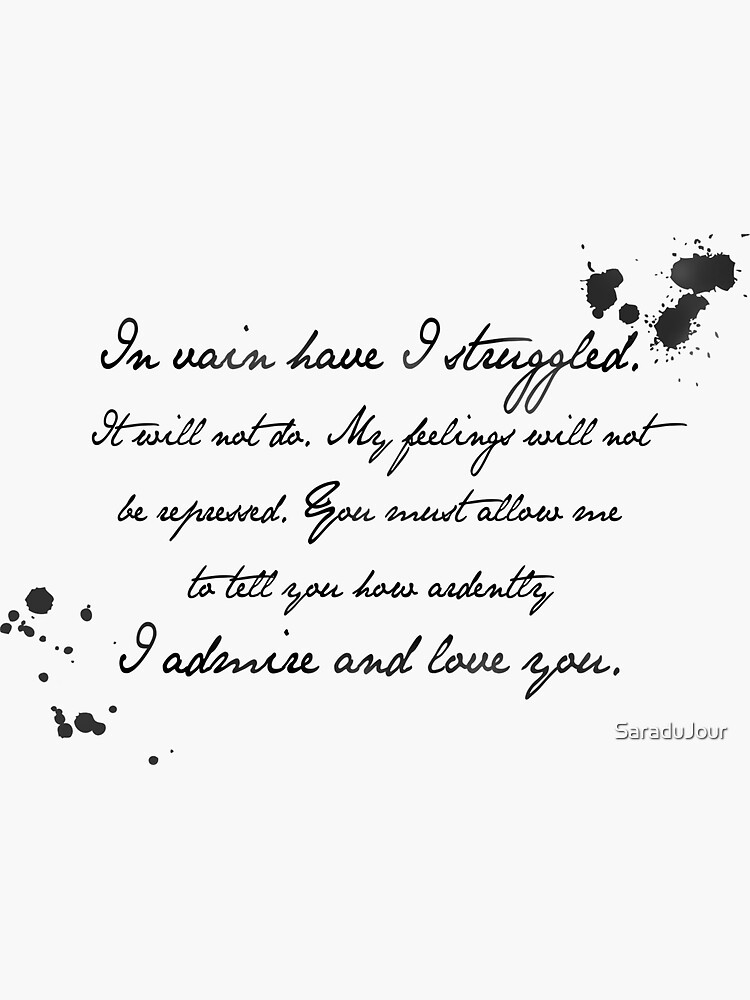 In vain have I struggled.
It will not do. My feelings will not
be repressed. You must allow me
to tell you how ardently
I admire and love you.
SaraduJour